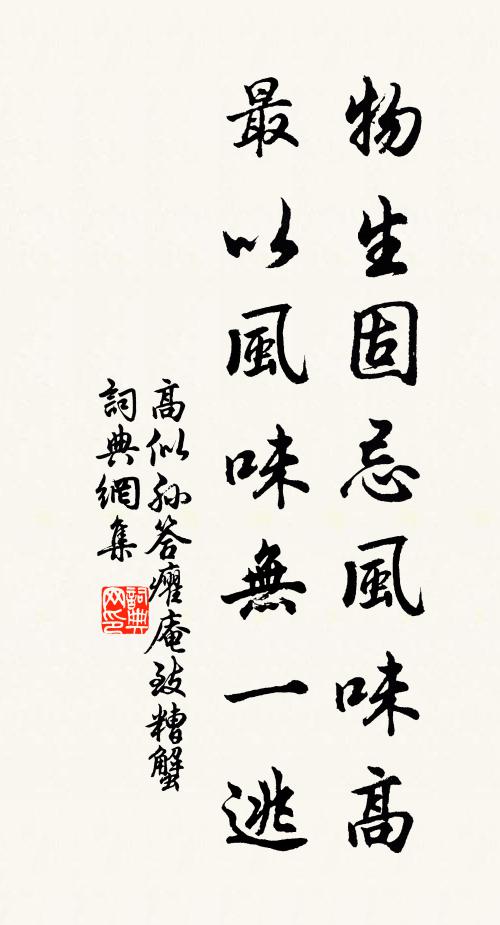 物生固忌風味高
最以風味無一逃
高似孙答癯庵致糟蟹
詞典網集
詞典网印